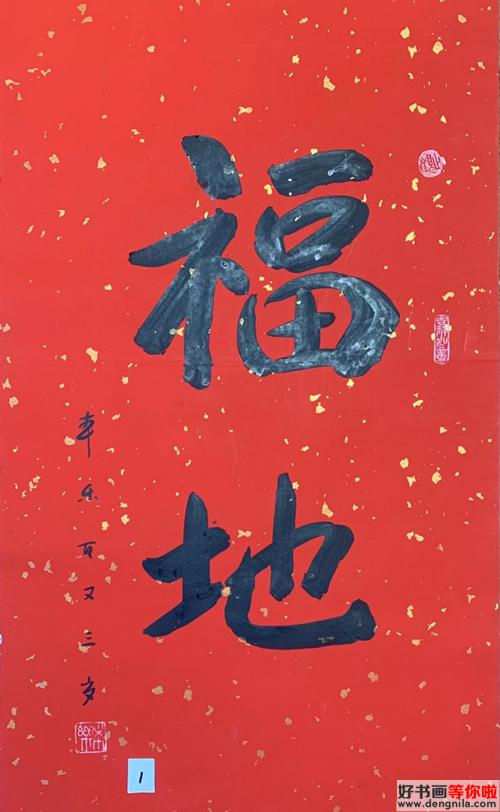 福
地
车乐百又三岁
1
好书画等你啦
www.dengnila.com